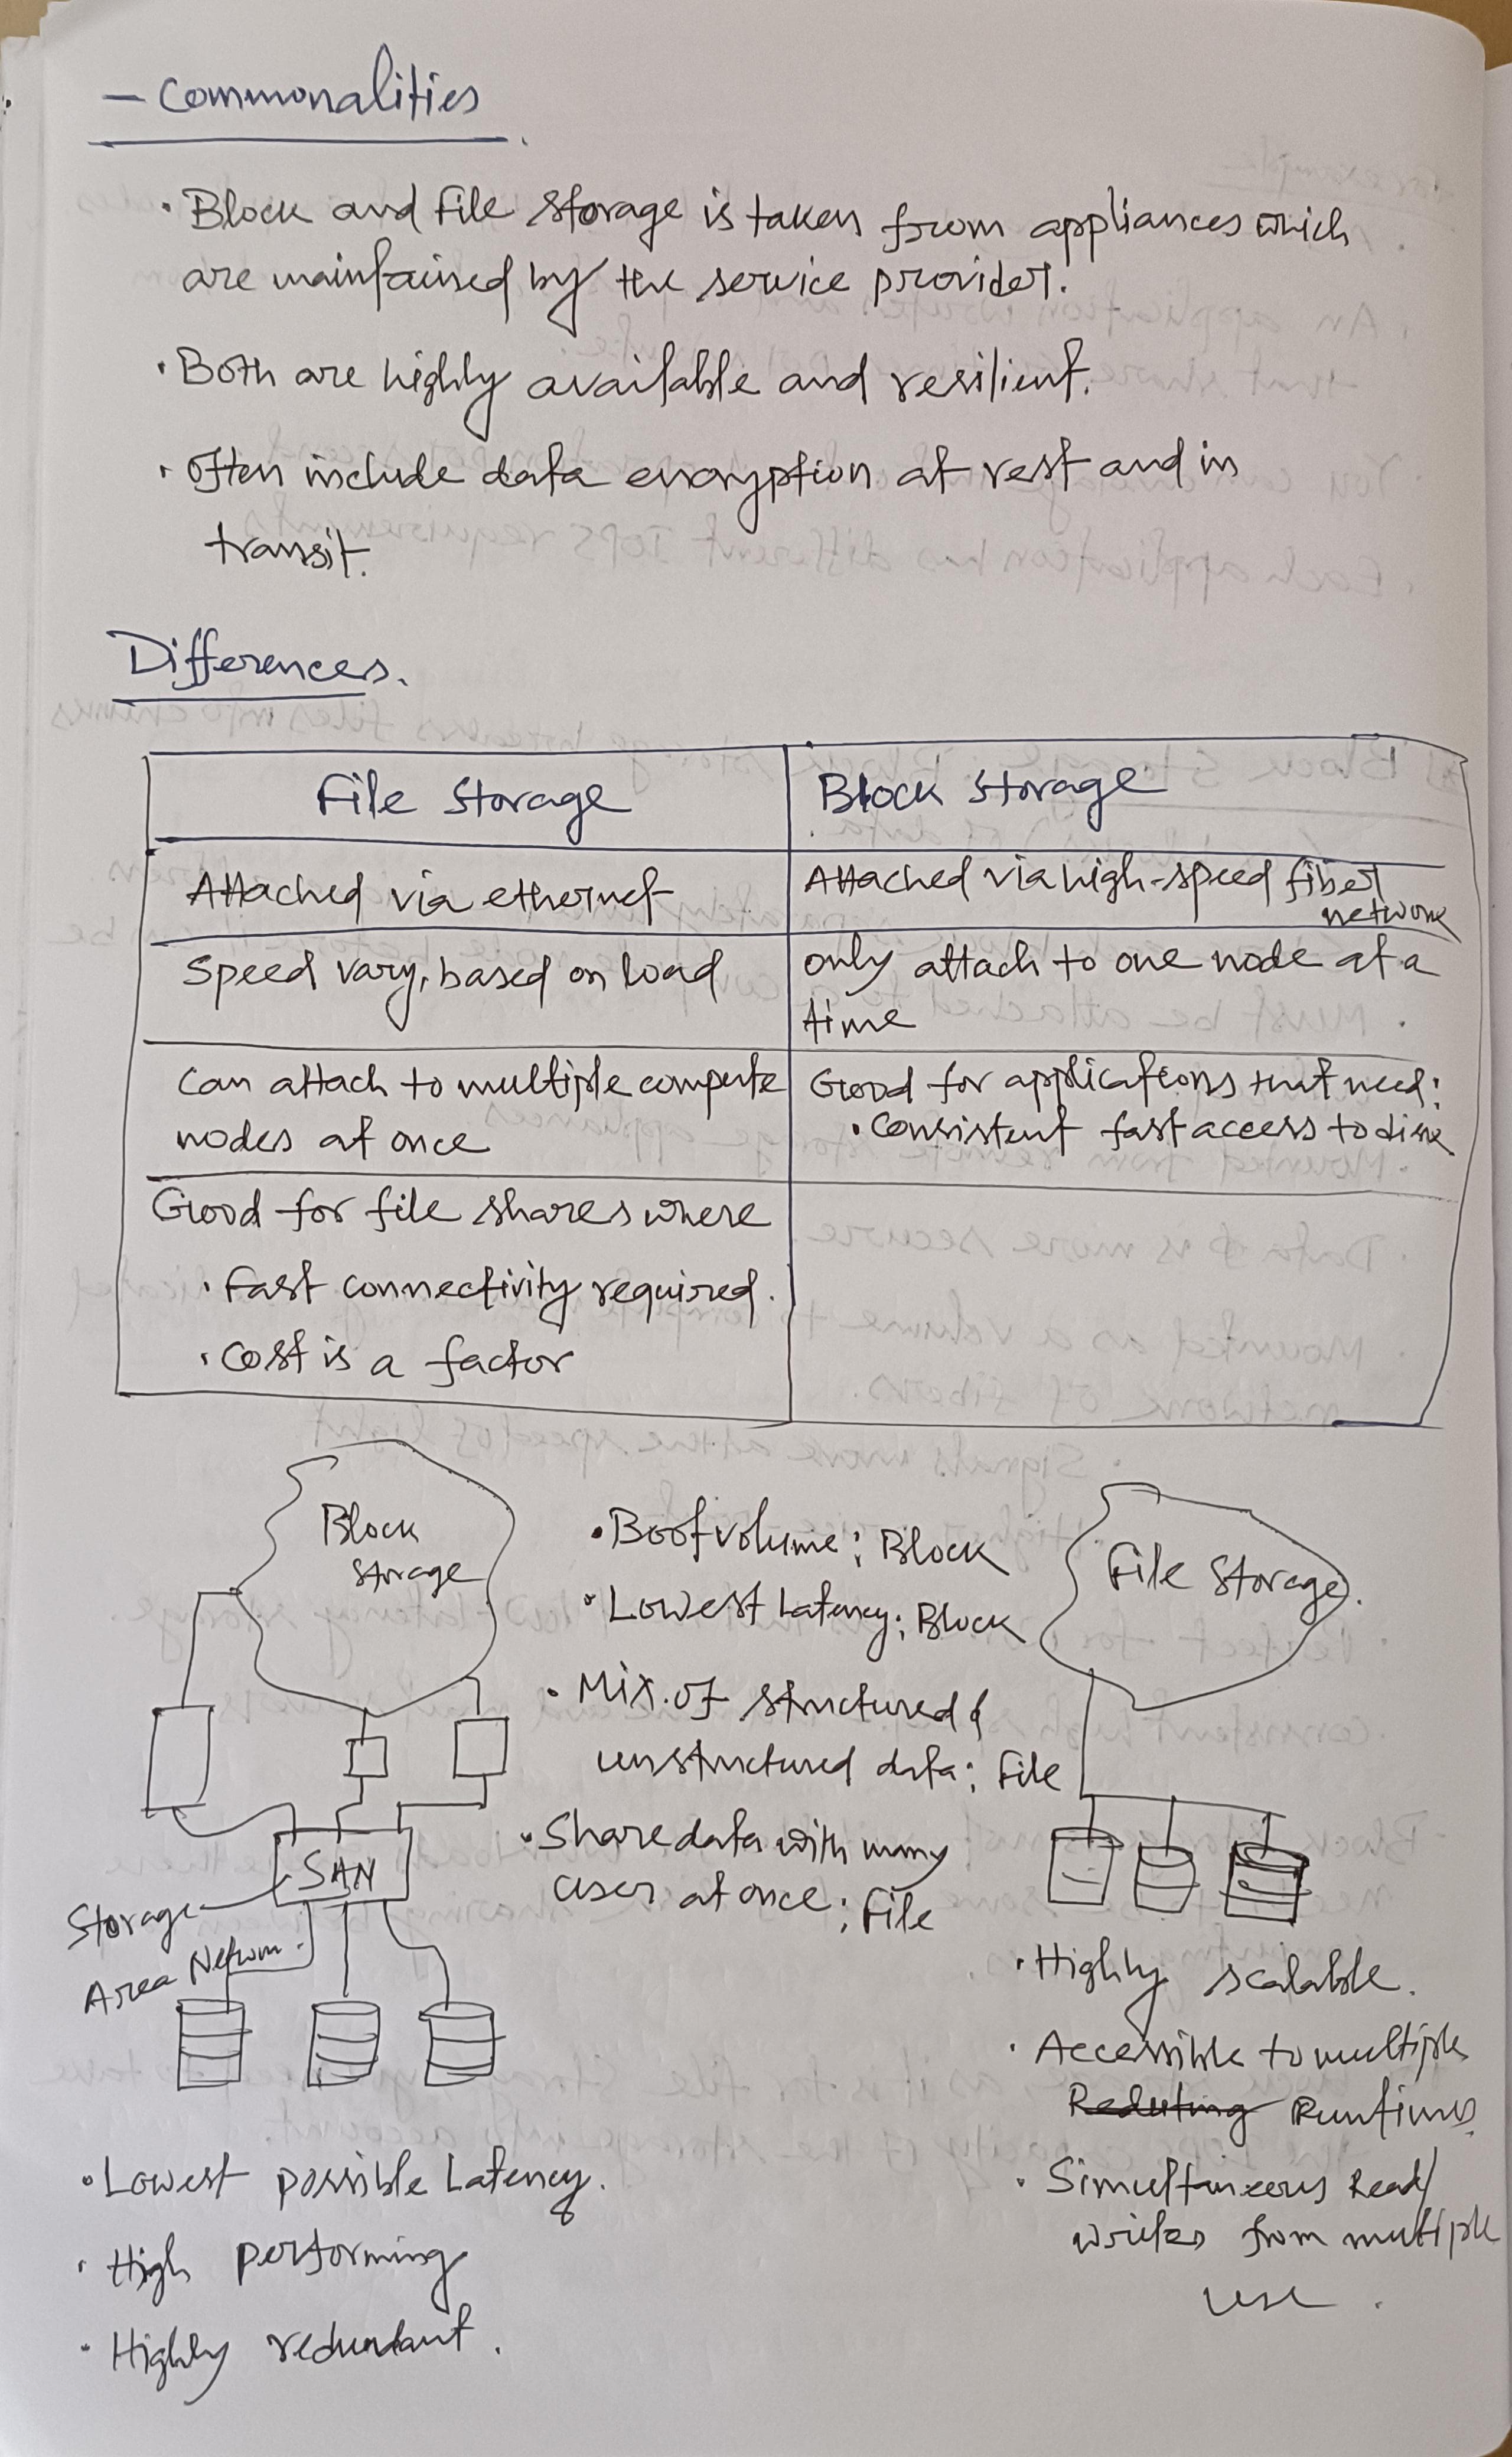 - Commonalities
· Block and file storage is taken from appliances which
are maintained by the service provider.
· Both are highly available and resilient.
· Often include data encryption at rest and in
transit.
Differences.
File Storage
Block Storage
Attached via ethernet
Attached via high-speed fiber
network
Speed vary, based on load
only attach to one node at a
time
Can attach to multiple compute
nodes at once
Good for applications that need:
· Consistent fast access to disk
Good for file shares where
· Fast connectivity required.
· Cost is a factor
Block
Storage
· Boot volume: Block
· Lowest Latency: Block
· Mix of structured &
unstructured data: File
· Share data with many
user at once: File
File Storage.
SAN
Storage
Area
· Lowest possible Latency.
· High performing
· Highly redundant.
· Highly scalable.
· Accessible to multiple
Runtimes
· Simultaneous Read/
writes from multiple
use.